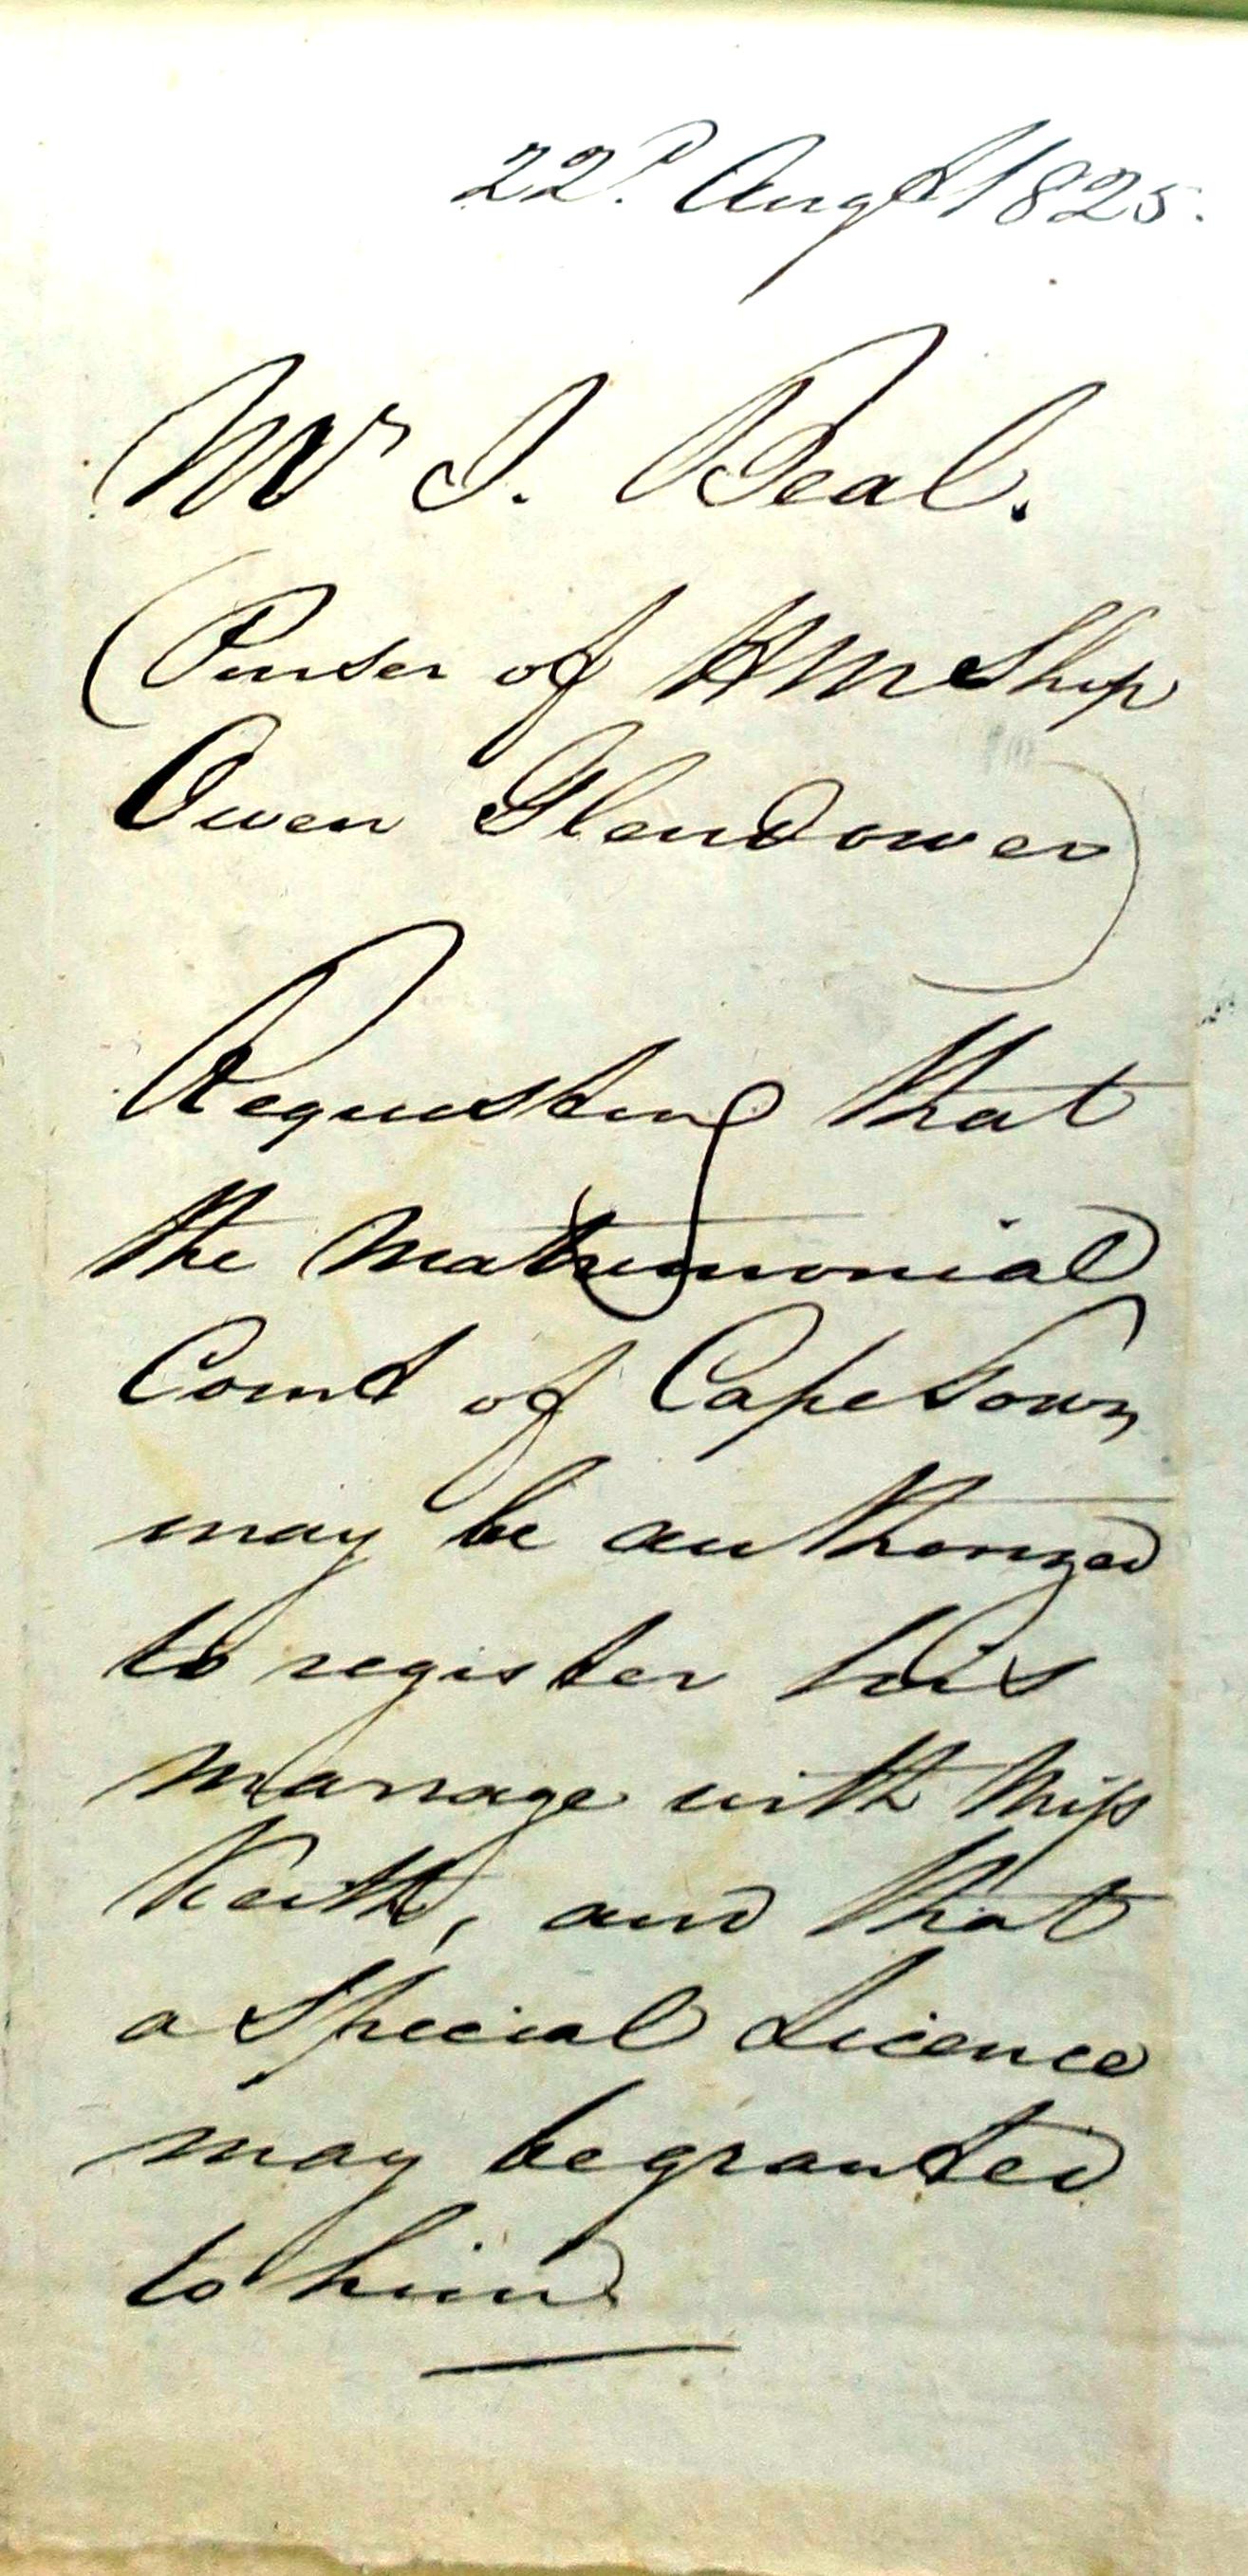 22d. Augst 1825.
Mr I. Beal.
(Purser of HM Ship
Owen Glendower)
Requesting that
the Matrimonial
Court of Cape town
may be authorized
to register his
marriage with Miss
Keith, and that
a Special Licence
may be granted
to him